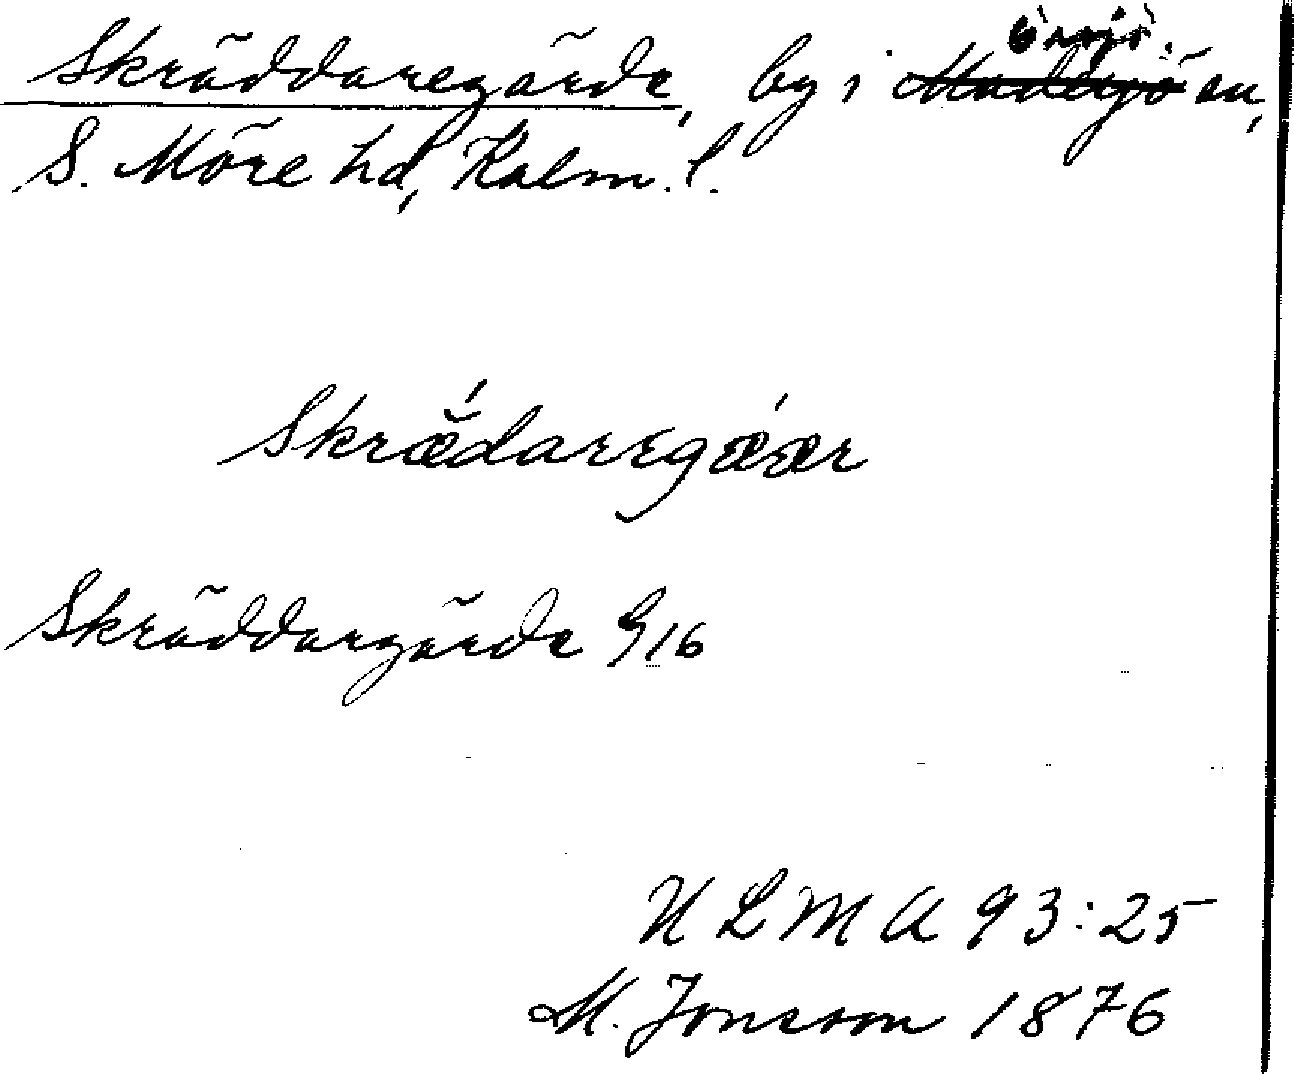 Skräddaregärde, by i Örsjö sn,
S. Möre hd, Kalm. l.
Skrǽ̆daregǽær
Skräddargärde G16
ULMA 93:25
M. Jonsson 1876